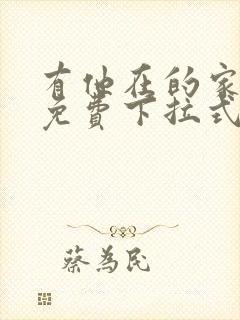 有他在的家
免费下拉式
蔡為民